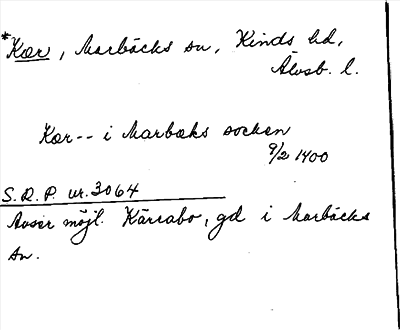 *Kær, Marbäcks sn, Kinds hd,
Älvsb. l.
Kær-- i Marbæks socken
9/2 1400
S.R.P. nr. 3064
Avser möjl. Kärrabo, gd i Marbäcks
sn.